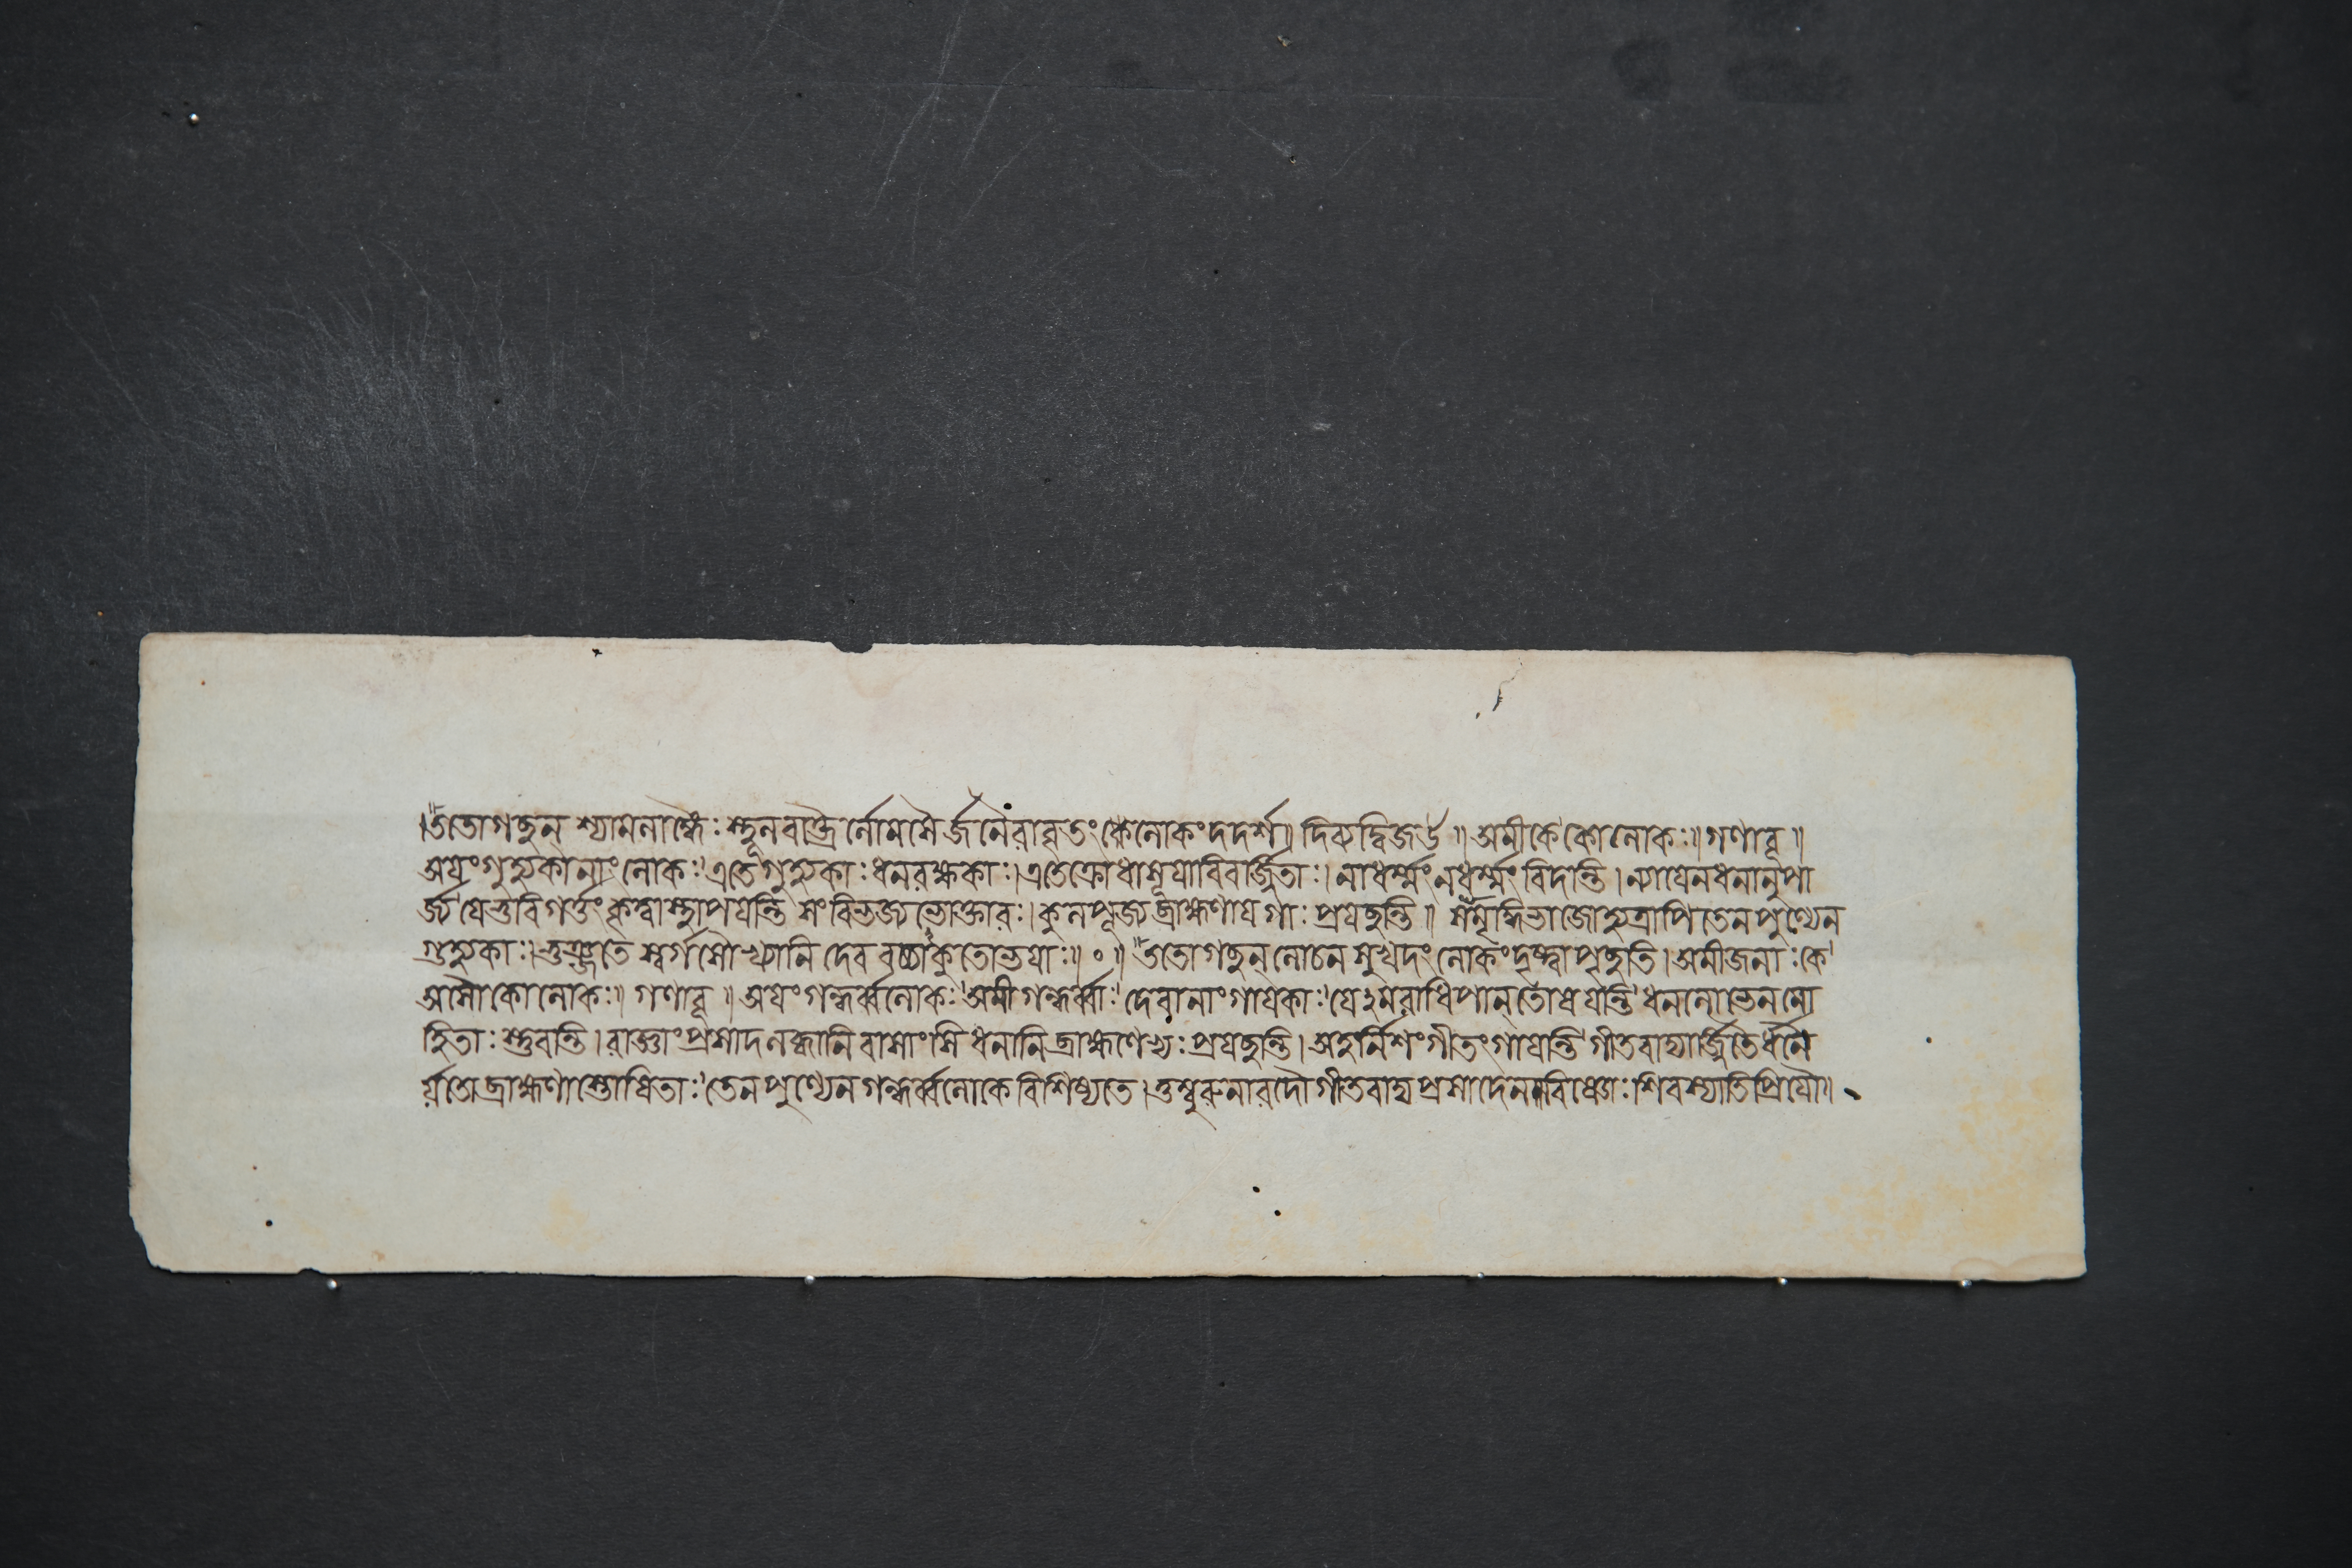 ।ততোগচ্ছন্ শ্যামলাঙ্গৈঃ স্থূলবক্ত্রৈর্লোমশৈর্জনৈরাবৃতং লোকং দদর্শ॥ দিব্যদ্বিজউ॥ অমীকেকোলোকঃ॥গণাবূ॥
অয়ংগুহ্যকানাংলোকঃ।এতেগুহ্যকাঃধনরক্ষকাঃ।এতেক্রোধাসূয়াবিবর্জ্জিতাঃ।নাধর্ম্মংনধর্ম্মংবিদন্তি।ন্যায়েনধনানুপা
র্জ্যযেভুবিগর্ত্তংকৃত্বাস্থাপয়ন্তি সংবিভজ্যভোক্তারঃ।কুলপূজ্যব্রাহ্মণায়গাঃপ্রয়চ্ছন্তি॥ সমৃদ্ধিভাজোহ্যত্রাপিতেনপুণ্যেন
গুহ্যকাঃ।ভুঞ্জতে স্বর্গসৌখ্যানি দেববচ্চাকুতোভয়াঃ॥॰॥ ততোগচ্ছন্লোচনসুখদংলোকংদৃষ্ট্বাপৃচ্ছতি।অমীজনাঃকে।
অসৌকোলোকঃ॥ গণাবূ॥ অয়ংগন্ধর্ব্বলোকঃ।অমীগন্ধর্ব্বাঃ।দেবানাংগায়কাঃ।যেঽমরাধিপান্তোষয়ন্তি।ধনলোভেনমো
হিতাঃস্তুবন্তি।রাজ্ঞাংপ্রসাদলব্ধানিবাসাংসিধনানিব্রাহ্মণেভ্যঃপ্রয়চ্ছন্তি।অহর্নিশংগীতংগায়ন্তি।গীতবাদ্যার্জ্জিতৈর্ধনৈ
র্য়তোব্রাহ্মণাস্তোষিতাঃ।তেনপুণ্যেনগন্ধর্ব্বলোকেবিশিষ্যতে।তুম্বুরুনারদৌগীতবাদ্যপ্রসাদেনবিষ্ণোঃশিবস্যাতিপ্রিয়ৌ॥